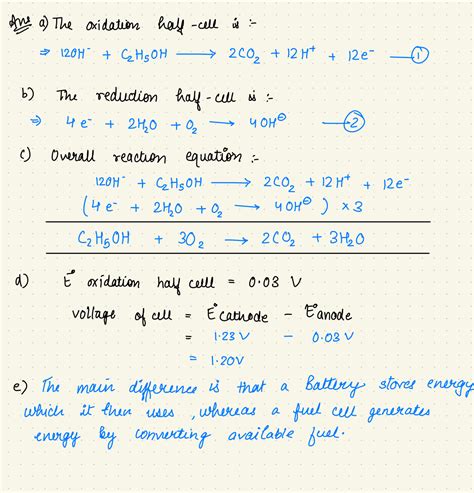 Ans a) The oxidation half-cell is :-
⇒ 12OH⁻ + C₂H₅OH ⟶ 2CO₂ + 12H⁺ + 12e⁻ —①
b) The reduction half-cell is :-
⇒ 4e⁻ + 2H₂O + O₂ ⟶ 4OH⊖ —②
c) Overall reaction equation :-
12OH⁻ + C₂H₅OH ⟶ 2CO₂ + 12H⁺ + 12e⁻
(4e⁻ + 2H₂O + O₂ ⟶ 4OH⊖) × 3
C₂H₅OH + 3O₂ ⟶ 2CO₂ + 3H₂O
d) E° oxidation half cell = 0.03 V
voltage of cell = E°cathode − E°anode
= 1.23 V − 0.03 V
= 1.20V
e) The main difference is that a Battery stores energy
which it then uses, whereas a fuel cell generates
energy by converting available fuel.